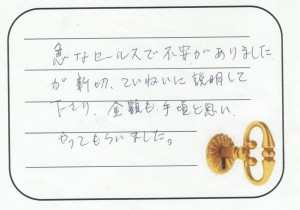 急なセールスで不安がありました
が親切、ていねいに説明して
下さり、金額も、手頃と思い、
やってもらいました。